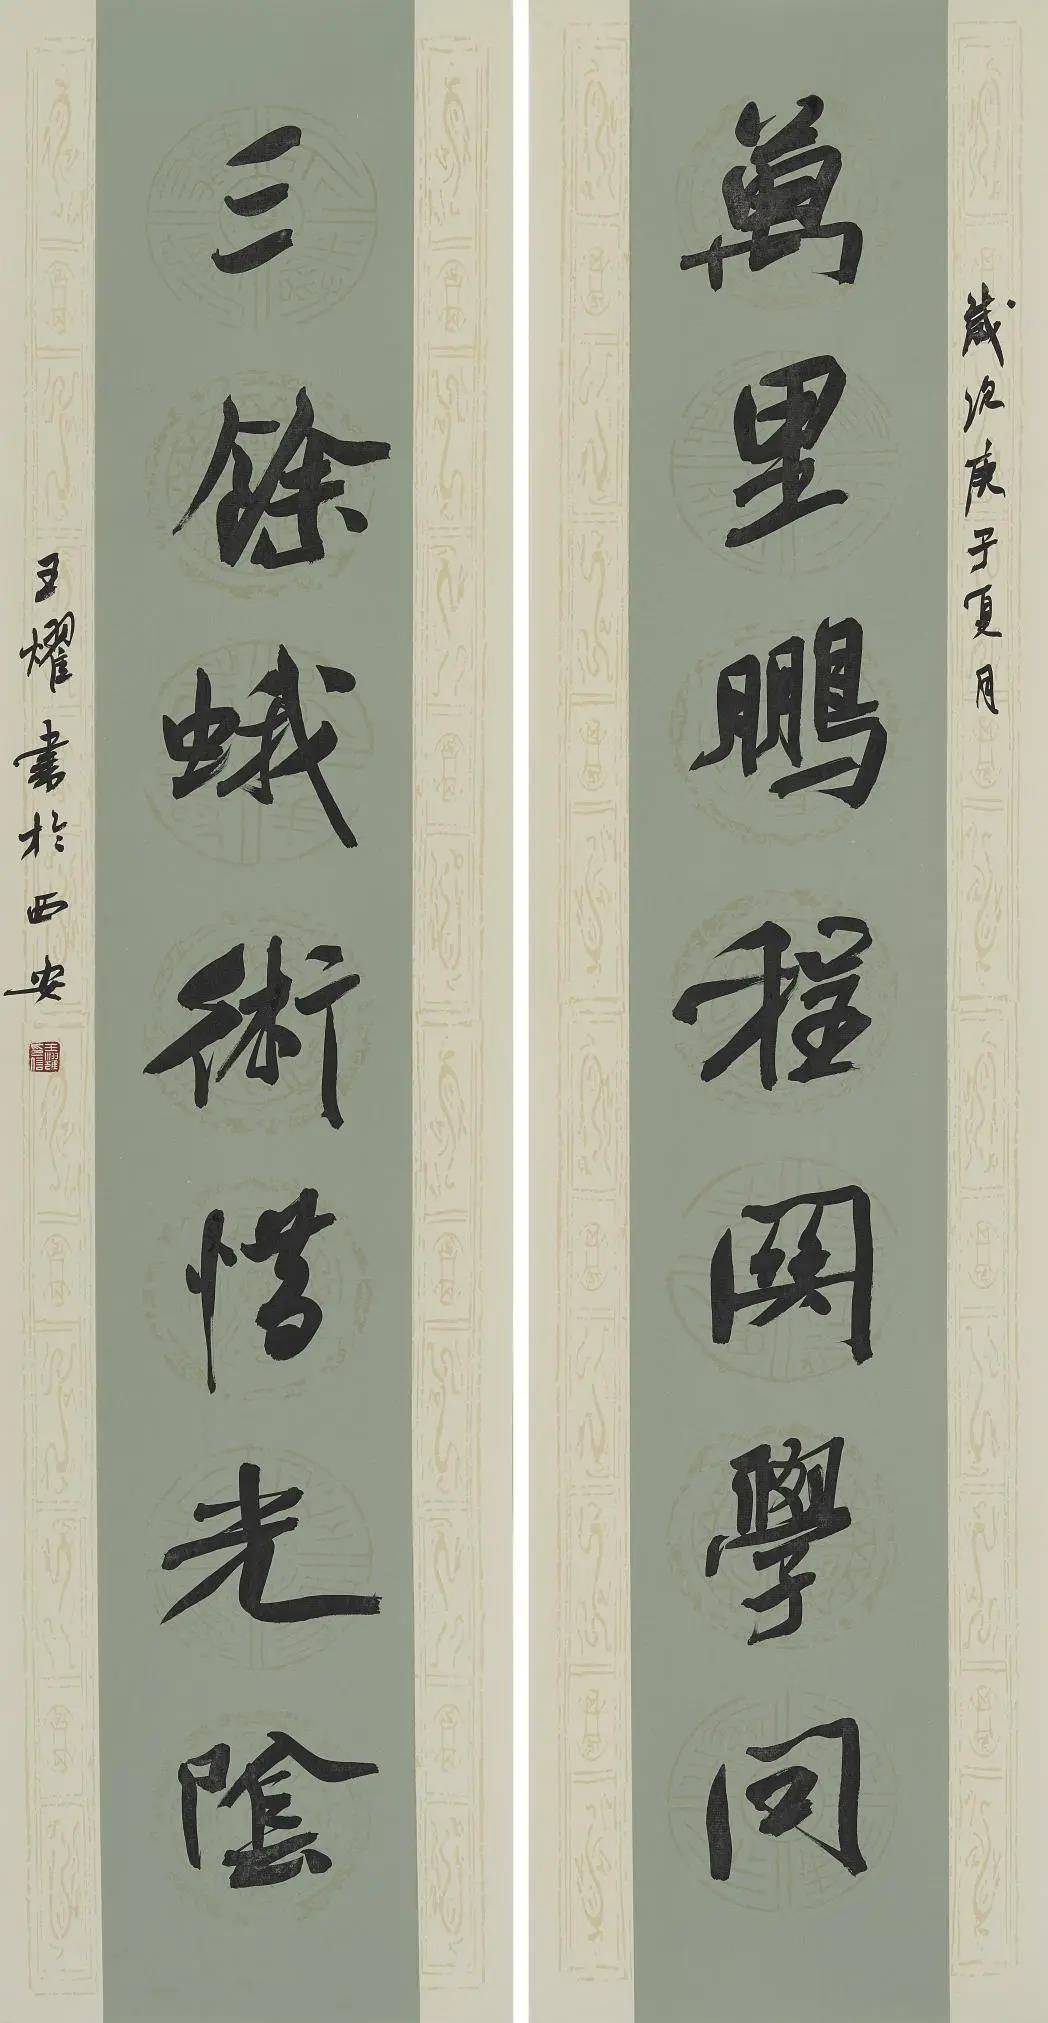 歲次庚子夏月
萬里鵬程關學問
三餘蛾術惜光陰
王耀書於西安